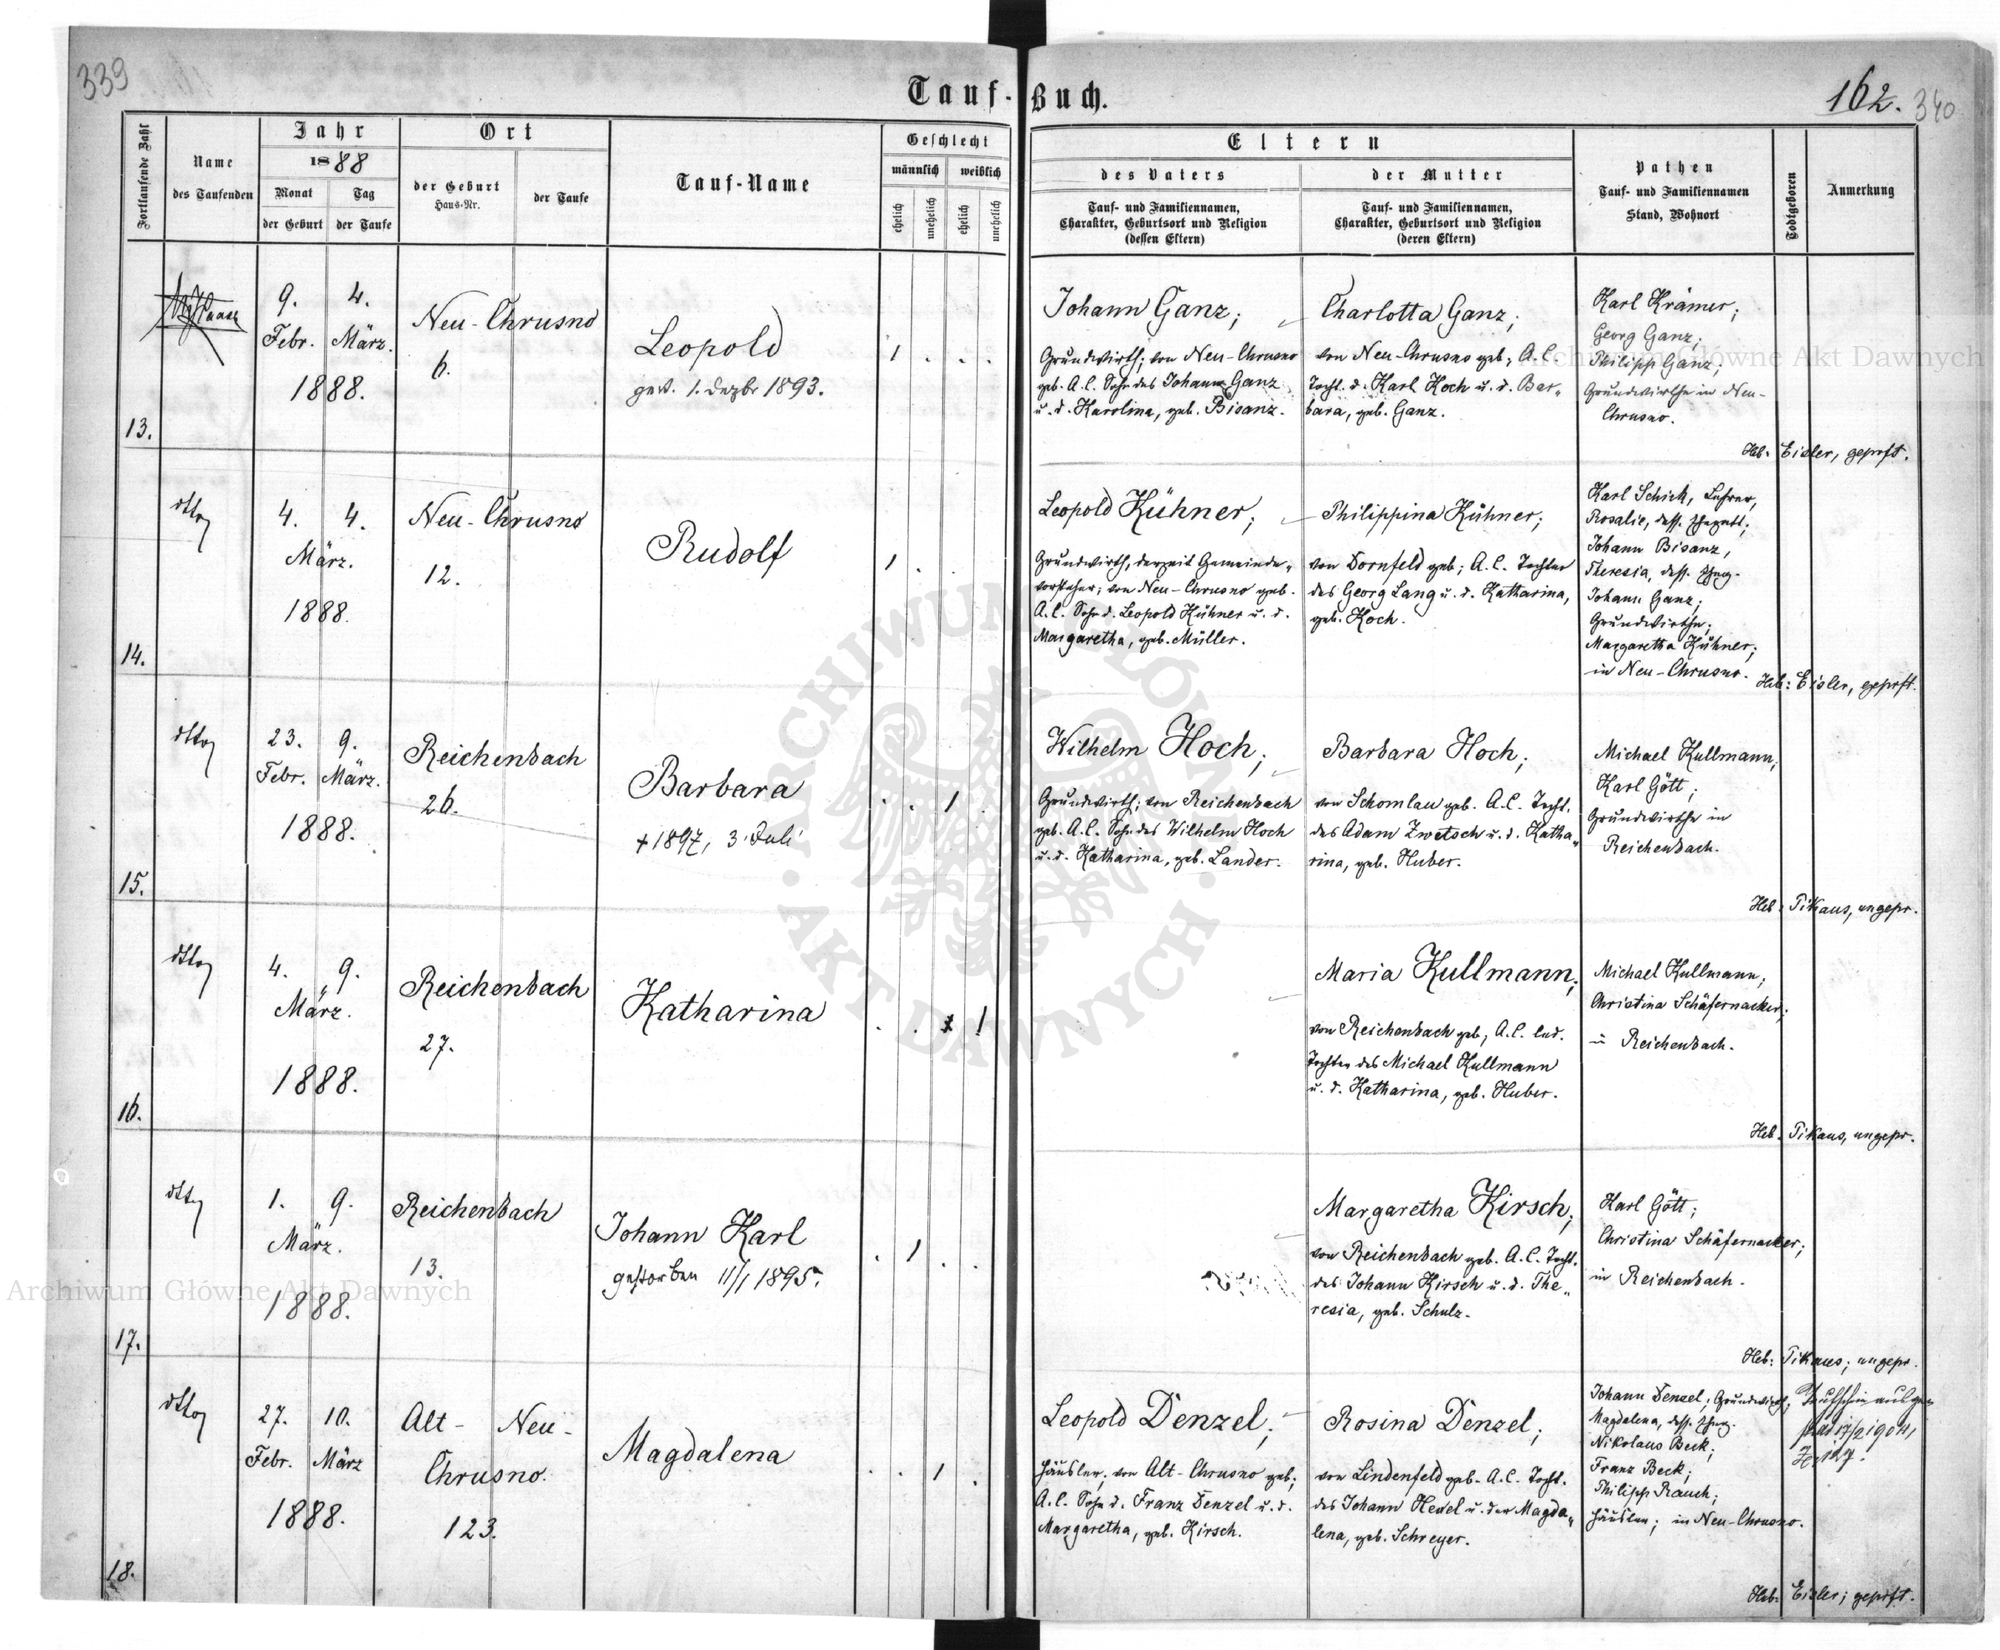 339
Tauf-Buch.
162. 340
Fortlaufende Zahl
Name
des Taufenden
Jahr
1888
Monat
der Geburt
Tag
der Taufe
Ort
der Geburt
Haus-Nr.
der Taufe
Tauf-Name
Geschlecht
männlich
weiblich
ehelich
unehelich
ehelich
unehelich
Eltern
des Vaters
Tauf- und Familiennamen,
Charakter, Geburtsort und Religion
(dessen Eltern)
der Mutter
Tauf- und Familiennamen,
Charakter, Geburtsort und Religion
(deren Eltern)
Pathen
Tauf- und Familiennamen
Stand, Wohnort
Todtgeboren
Anmerkung
13.
9. 4.
Febr. März.
1888.
Neu-Chrusno
6.
Leopold
gest. 1. Dezbr 1893.
1 . . .
Johann Ganz;
Grundwirth; von Neu-Chrusno
geb. A.C. Sohn des Johann Ganz
u. d. Karolina, geb. Bisanz.
Charlotta Ganz;
von Neu-Chrusno geb; A.C.
Tocht. d. Karl Koch u. d. Bar-
bara, geb. Ganz.
Karl Krämer;
Georg Ganz;
Philipp Ganz;
Grundwirthe in Neu-
Chrusno.
Heb: Eisler, geprft.
14.
dtto
4. 4.
März.
1888.
Neu-Chrusno
12.
Rudolf
1 . . .
Leopold Kühner;
Grundwirth, derzeit Gemeinde-
vorsteher; von Neu-Chrusno geb.
A.C. Sohn d. Leopold Kühner u. d.
Margaretha, geb. Müller.
Philippina Kühner;
von Dornfeld geb; A.C. Tochter
des Georg Lang u. d. Katharina,
geb. Koch.
Karl Schick, Lehrer,
Rosalie, dess. Ehegatt;
Johann Bisanz,
Theresia, dess. Eheg.
Johann Ganz;
Grundwirthe;
Margaretha Kühner;
in Neu-Chrusno.
Heb: Eisler, geprft.
15.
dtto
23. 9.
Febr. März.
1888.
Reichenbach
26.
Barbara
+ 1897, 3. Juli
. . 1 .
Wilhelm Hoch;
Grundwirth; von Reichenbach
geb. A.C. Sohn des Wilhelm Hoch
u. d. Katharina, geb. Lander.
Barbara Hoch;
von Schomlau geb. A.C. Tocht.
des Adam Zwetsch u. d. Katha-
rina, geb. Huber.
Michael Kullmann;
Karl Gött;
Grundwirthe in
Reichenbach.
Heb: Pikaus, ungepr.
16.
dtto
4. 9.
März.
1888.
Reichenbach
27.
Katharina
. . 1
Maria Kullmann;
von Reichenbach geb; A.C. led.
Tochter des Michael Kullmann
u. d. Katharina, geb. Huber.
Michael Kullmann;
Christina Schäfernacker;
in Reichenbach.
Heb: Pikaus, ungepr.
17.
dtto
1. 9.
März.
1888.
Reichenbach
13.
Johann Karl
gestorben 11/1 1895.
. 1 . .
Margaretha Kirsch;
von Reichenbach geb. A.C. Tocht.
des Johann Kirsch u. d. The-
resia, geb. Schulz.
Karl Gött;
Christina Schäfernacker;
in Reichenbach.
Heb: Pikaus; ungepr.
18.
dtto
27. 10.
Febr. März
1888.
Alt- Neu-
Chrusno.
123.
Magdalena
. . 1 .
Leopold Denzel;
Häusler, von Alt-Chrusno geb;
A.C. Sohn d. Franz Denzel u. d.
Margaretha, geb. Kirsch.
Rosina Denzel;
von Lindenfeld geb. A.C. Tocht.
des Johann Hexel u. der Magda-
lena, geb. Schreyer.
Johann Denzel; Grundwirth;
Magdalena, dess. Eheg.
Nikolaus Beck;
Franz Beck;
Philipp Rauch;
Häusler; in Neu-Chrusno.
Taufschein ausge-
17/2 1904,
Z. 127.
Heb: Eisler; geprft.
Archiwum Główne Akt Dawnych
Archiwum Główne Akt Dawnych
ARCHIWUM GŁÓWNE
AKT DAWNYCH